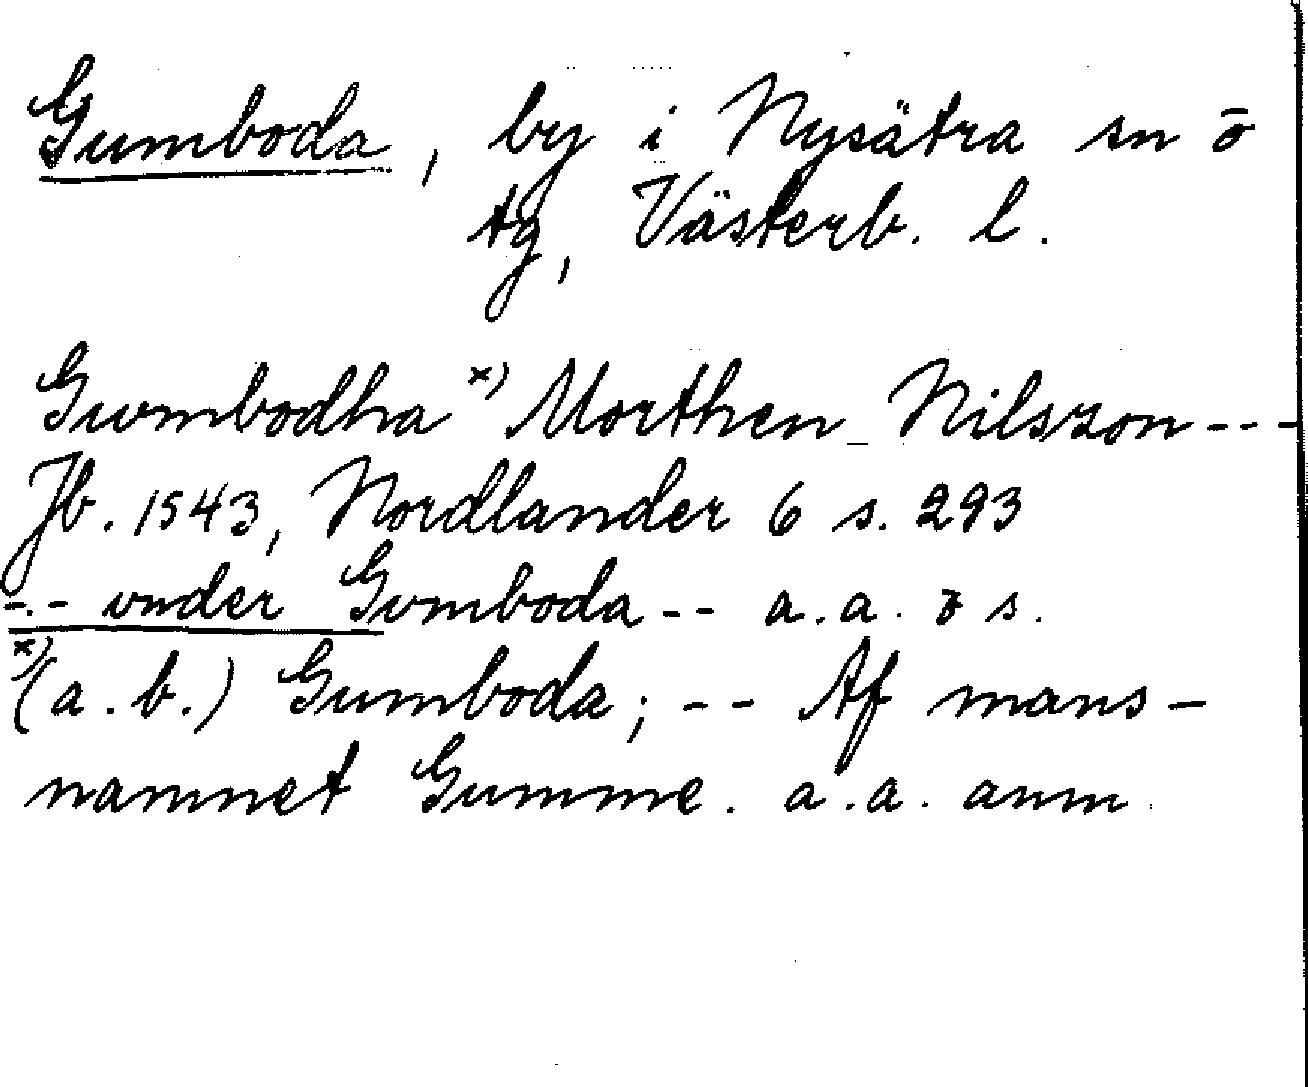 Gumboda, by i Nysätra sn ō
tg, Västerb. l.
Gwmbodha x) Morthen Nilszon ---
Jb. 1543, Nordlander 6 s. 293
--- vnder Gvmboda -- a.a. ō s.
x) (a.b.) Gumboda; -- Af mans-
namnet Gumme. a.a. anm.